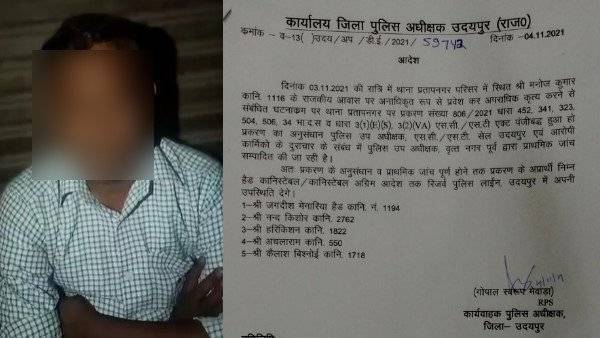 कार्यालय जिला पुलिस अधीक्षक उदयपुर (राज0)
कमांक - व-13( )उदय/अप /डी.ई./2021/ 59742 दिनांक -04.11.2021
आदेश
दिनांक 03.11.2021 की रात्रि में थाना प्रतापनगर परिसर में स्थित श्री मनोज कुमार
कानि. 1116 के राजकीय आवास पर अनाधिकृत रूप से प्रवेश कर अपराधिक कृत्य करने से
संबंधित घटनाक्रम पर थाना प्रतापनगर पर प्रकरण संख्या 806/2021 धारा 452, 341, 323,
504, 506, 34 भा.द.स व धारा 3(1)(E)(S), 3(2)(VA) एस.सी./ एस.टी एक्ट पंजीबद्ध हुआ हो
प्रकरण का अनुसंधान पुलिस उप अधीक्षक, एस.सी./ एस.टी. सेल उदयपुर एवं आरोपी
कार्मिको के दुराचार के संबंध में पुलिस उप अधीक्षक, वृत्त नगर पूर्व द्वारा प्राथमिक जांच
सम्पादित की जा रही है।
अतः प्रकरण के अनुसंधान व प्राथमिक जांच पूर्ण होने तक प्रकरण के अप्रार्थी निम्न
हैड कानिस्टेबल/कानिस्टेबल अग्रिम आदेश तक रिजर्व पुलिस लाईन, उदयपुर में अपनी
उपस्थिति देगे।
1-श्री जगदीश मेनारिया हैड कानि. नं. 1194
2-श्री नन्द किशोर कानि. 2762
3-श्री हरिकिशन कानि. 1822
4-श्री अचलाराम कानि. 550
5-श्री कैलाश बिश्नोई कानि. 1718
(गोपाल स्वरूप मेवाड़ा)
RPS
कार्यवाहक पुलिस अधीक्षक,
जिला- उदयपुर